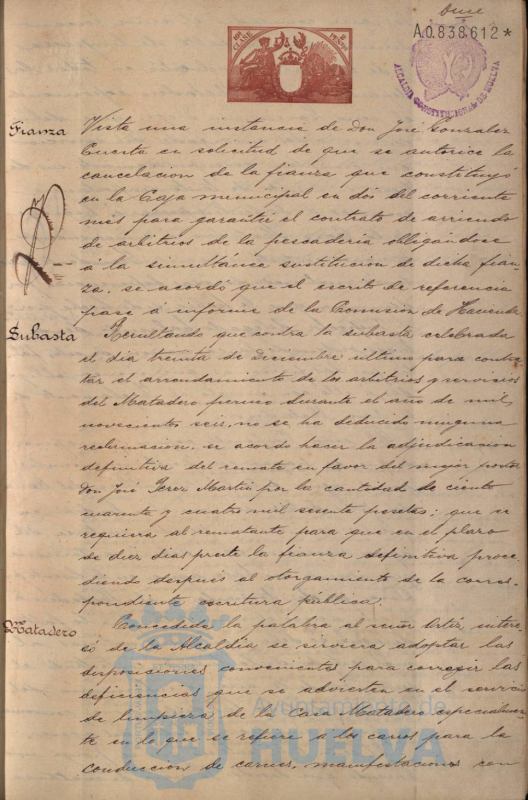 once
A.0.838.612*
11ª CLASE
ALCALDIA CONSTITUCIONAL DE HUELVA
Fianza
Vista una instancia de Don José Gonzalez
Cuerta en solicitud de que se autorice la
cancelacion de la fianza que constituyó
en la Caja municipal en dos del corriente
mes para garantir el contrato de arriendo
de arbitrios de la pescaderia obligándose
á la simultánea sustitución de dicha fian-
za, se acordó que el escrito de referencia
pase á informe de la Comision de Hacienda.
Subasta
Resultando que contra la subasta celebrada
el dia treinta de Diciembre último para contra-
tar el arrendamiento de los arbitrios y servicios
del Matadero durante el año de mil
novecientos seis, no se ha deducido ninguna
reclamacion, se acordo hacer la adjudicacion
definitiva del remate en favor del mejor postor
Don José Perez Martin por la cantidad de ciento
cuarenta y cuatro mil sesenta pesetas; que se
requiera al rematante para que en el plazo
de diez dias preste la fianza definitiva proce-
diendo despues al otorgamiento de la corres-
pondiente escritura pública.
Matadero
Concedida la palabra al señor Ortiz, intere-
só de la Alcaldía se sirviera adoptar las
disposiciones convenientes para corregir las
deficiencias que se advierten en el servicio
de limpieza de la Casa Matadero especialmen-
te en lo que se refiere á los carros para la
conduccion de carnes, manifestaciones con
Ayuntamiento de
HUELVA